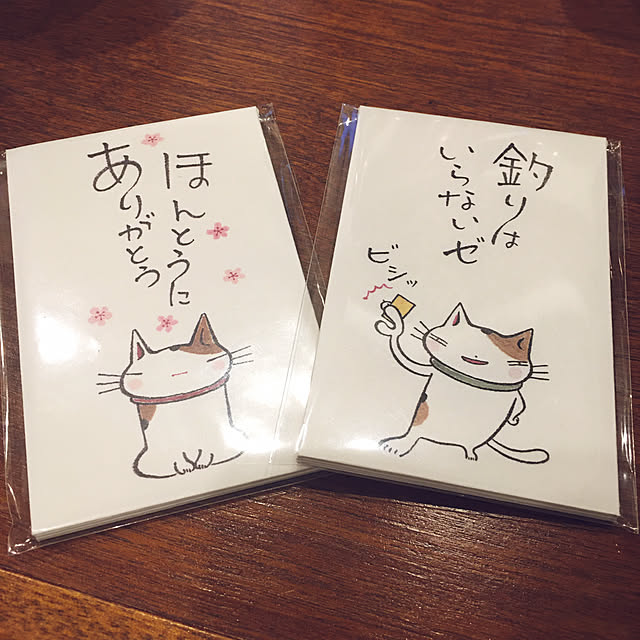 ほんとうに
ありがとう
釣りは
いらないゼ
ビシッ